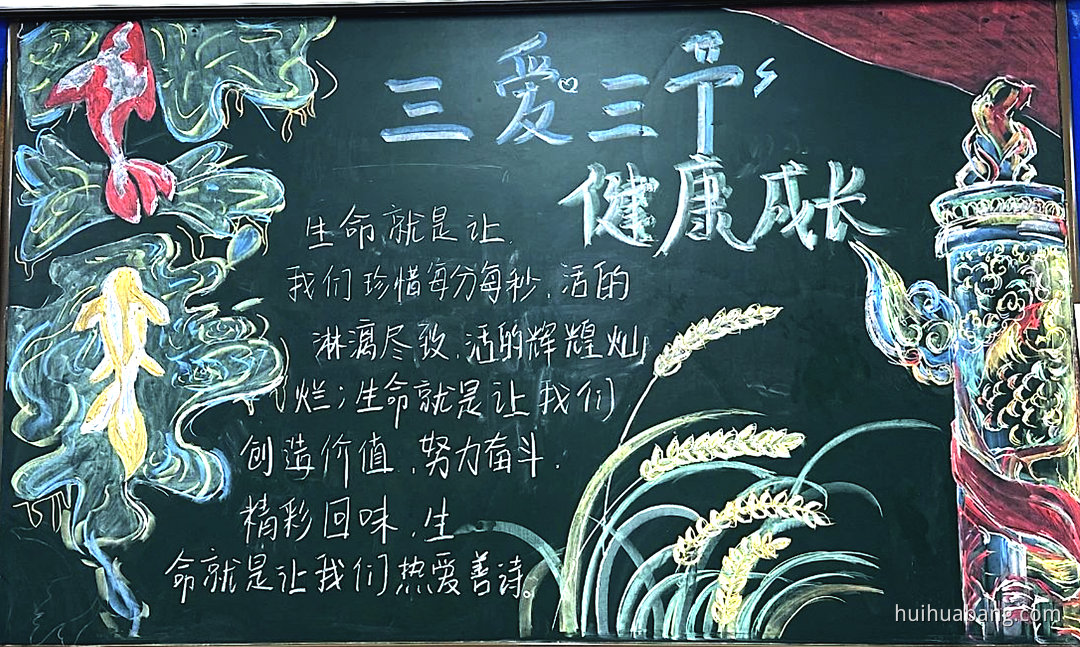 三爱三予
健康成长
生命就是让
我们珍惜每分每秒,活的
淋漓尽致,活的辉煌灿
烂;生命就是让我们
创造价值,努力奋斗,
精彩回味,生
命就是让我们热爱善诗。
huihuabang.com